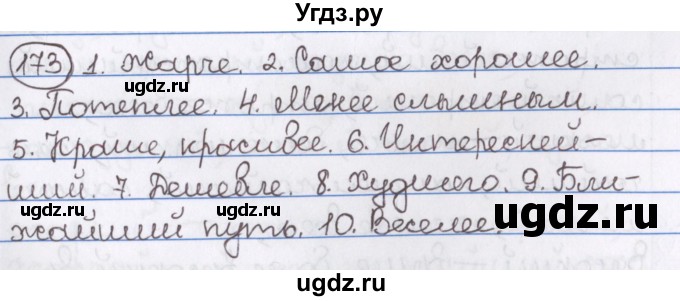 Угдз.ру
173 1. Жарче. 2. Самое хорошее.
3. Потеплее. 4. Менее слышным.
5. Краше, красивее. 6. Интересней-
ший. 7. Дешевле. 8. Худшего. 9. Бли-
жайший путь. 10. Веселее.
ugdz.ru
ugdz.ru
ugdz.ru
ugdz.ru
ugdz.ru
ugdz.ru
ugdz.ru